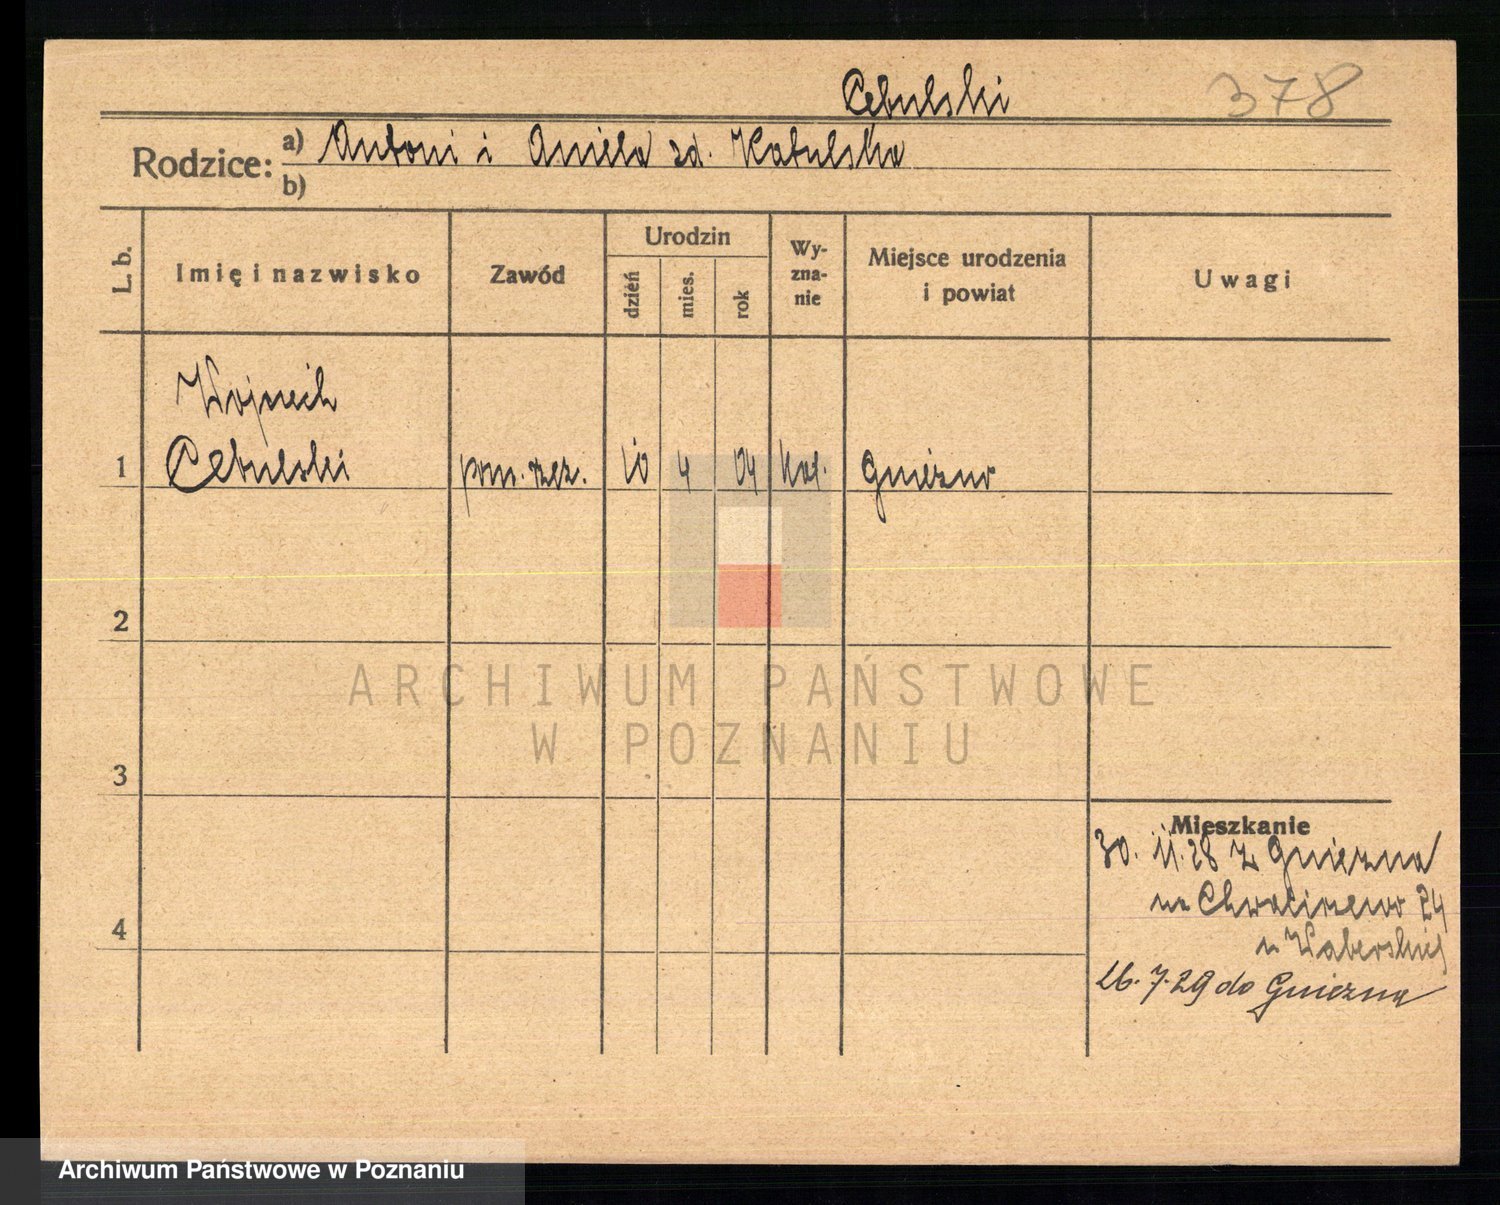 Cebulski 378
Rodzice: a) Antoni i Aniela zd. Kabulska
b)
L. b. Imię i nazwisko Zawód Urodzin dzień mies. rok Wy-zna-nie Miejsce urodzenia i powiat Uwagi
Wojciech
1 Cebulski pom. rzeź. 10 4 04 kat. Gniezno
2
3
4
Mieszkanie
30. 11. 28 z Gniezna
na Chwaliszewo 24
u
26. 7. 29 do Gniezna
ARCHIWUM PAŃSTWOWE
W POZNANIU
Archiwum Państwowe w Poznaniu